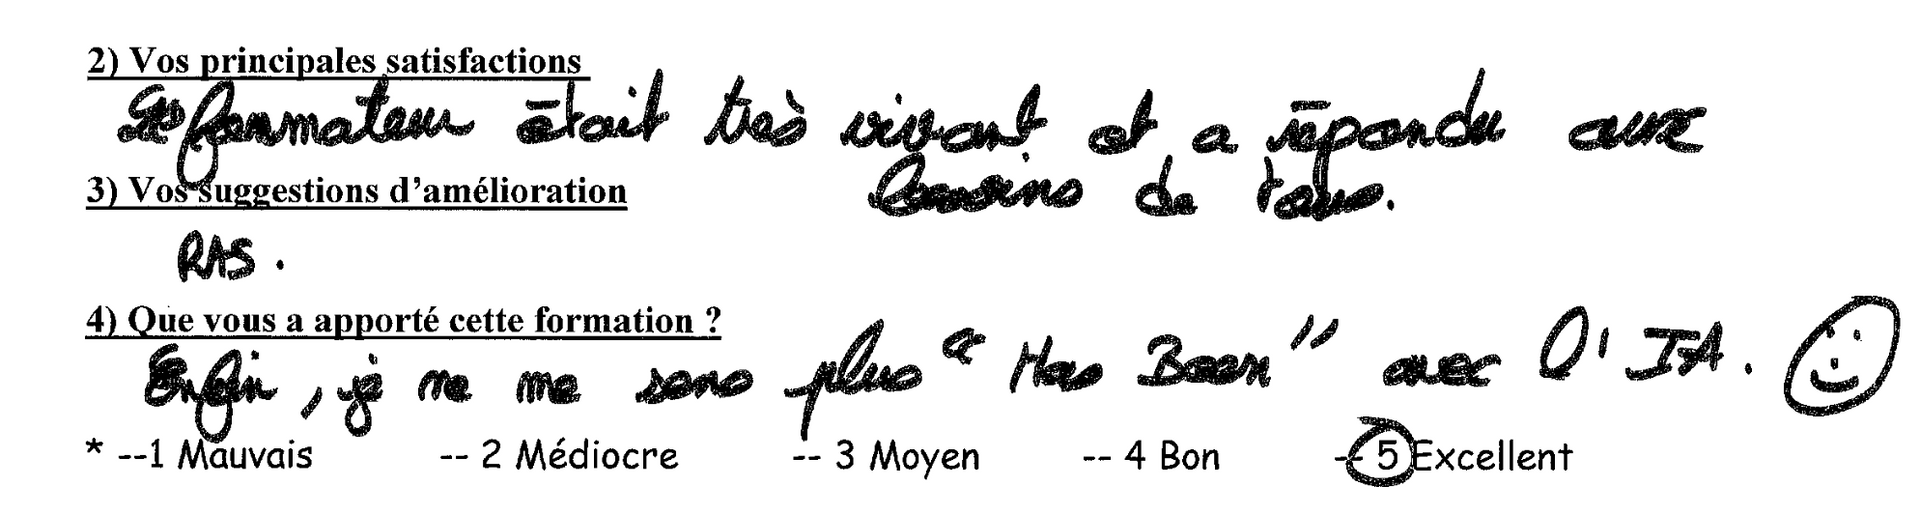 2) Vos principales satisfactions
Le formateur était très vivant et a répondu aux
besoins de tous.
3) Vos suggestions d’amélioration
RAS.
4) Que vous a apporté cette formation ?
Enfin, je ne me sens plus "Has Been" avec l'IA.
* --1 Mauvais -- 2 Médiocre -- 3 Moyen -- 4 Bon -- 5 Excellent